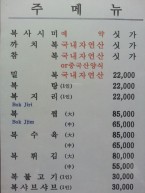 주 메 뉴
복 사 시 미 예 약 싯 가
까 치 복 국내자연산 싯 가
참 복 국내자연산 싯 가
or중국산양식
밀 복 국내자연산 22,000
복 탕 (1인) 22,000
복 지 리 (1인) 22,000
Bok Jiri
복 찜 (大) 85,000
Bok Jjim (小) 65,000
복 수 육 (大) 85,000
(小) 65,000
복 튀 김 (大) 80,000
(小) 55,000
복 불 고 기 (1인) 30,000
복샤브샤브 (1인) 30,000